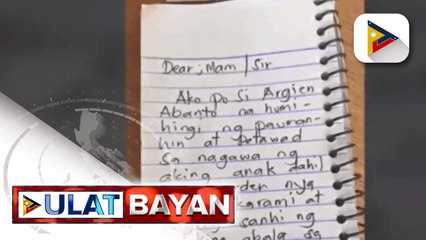 Dear; Mam / Sir
Ako po si Argien
Abanto na humi-
hingi ng
at Patawad
sa nagawa ng
aking anak dahil
nya
at
sanhi ng
abala sa
ULAT BAYAN